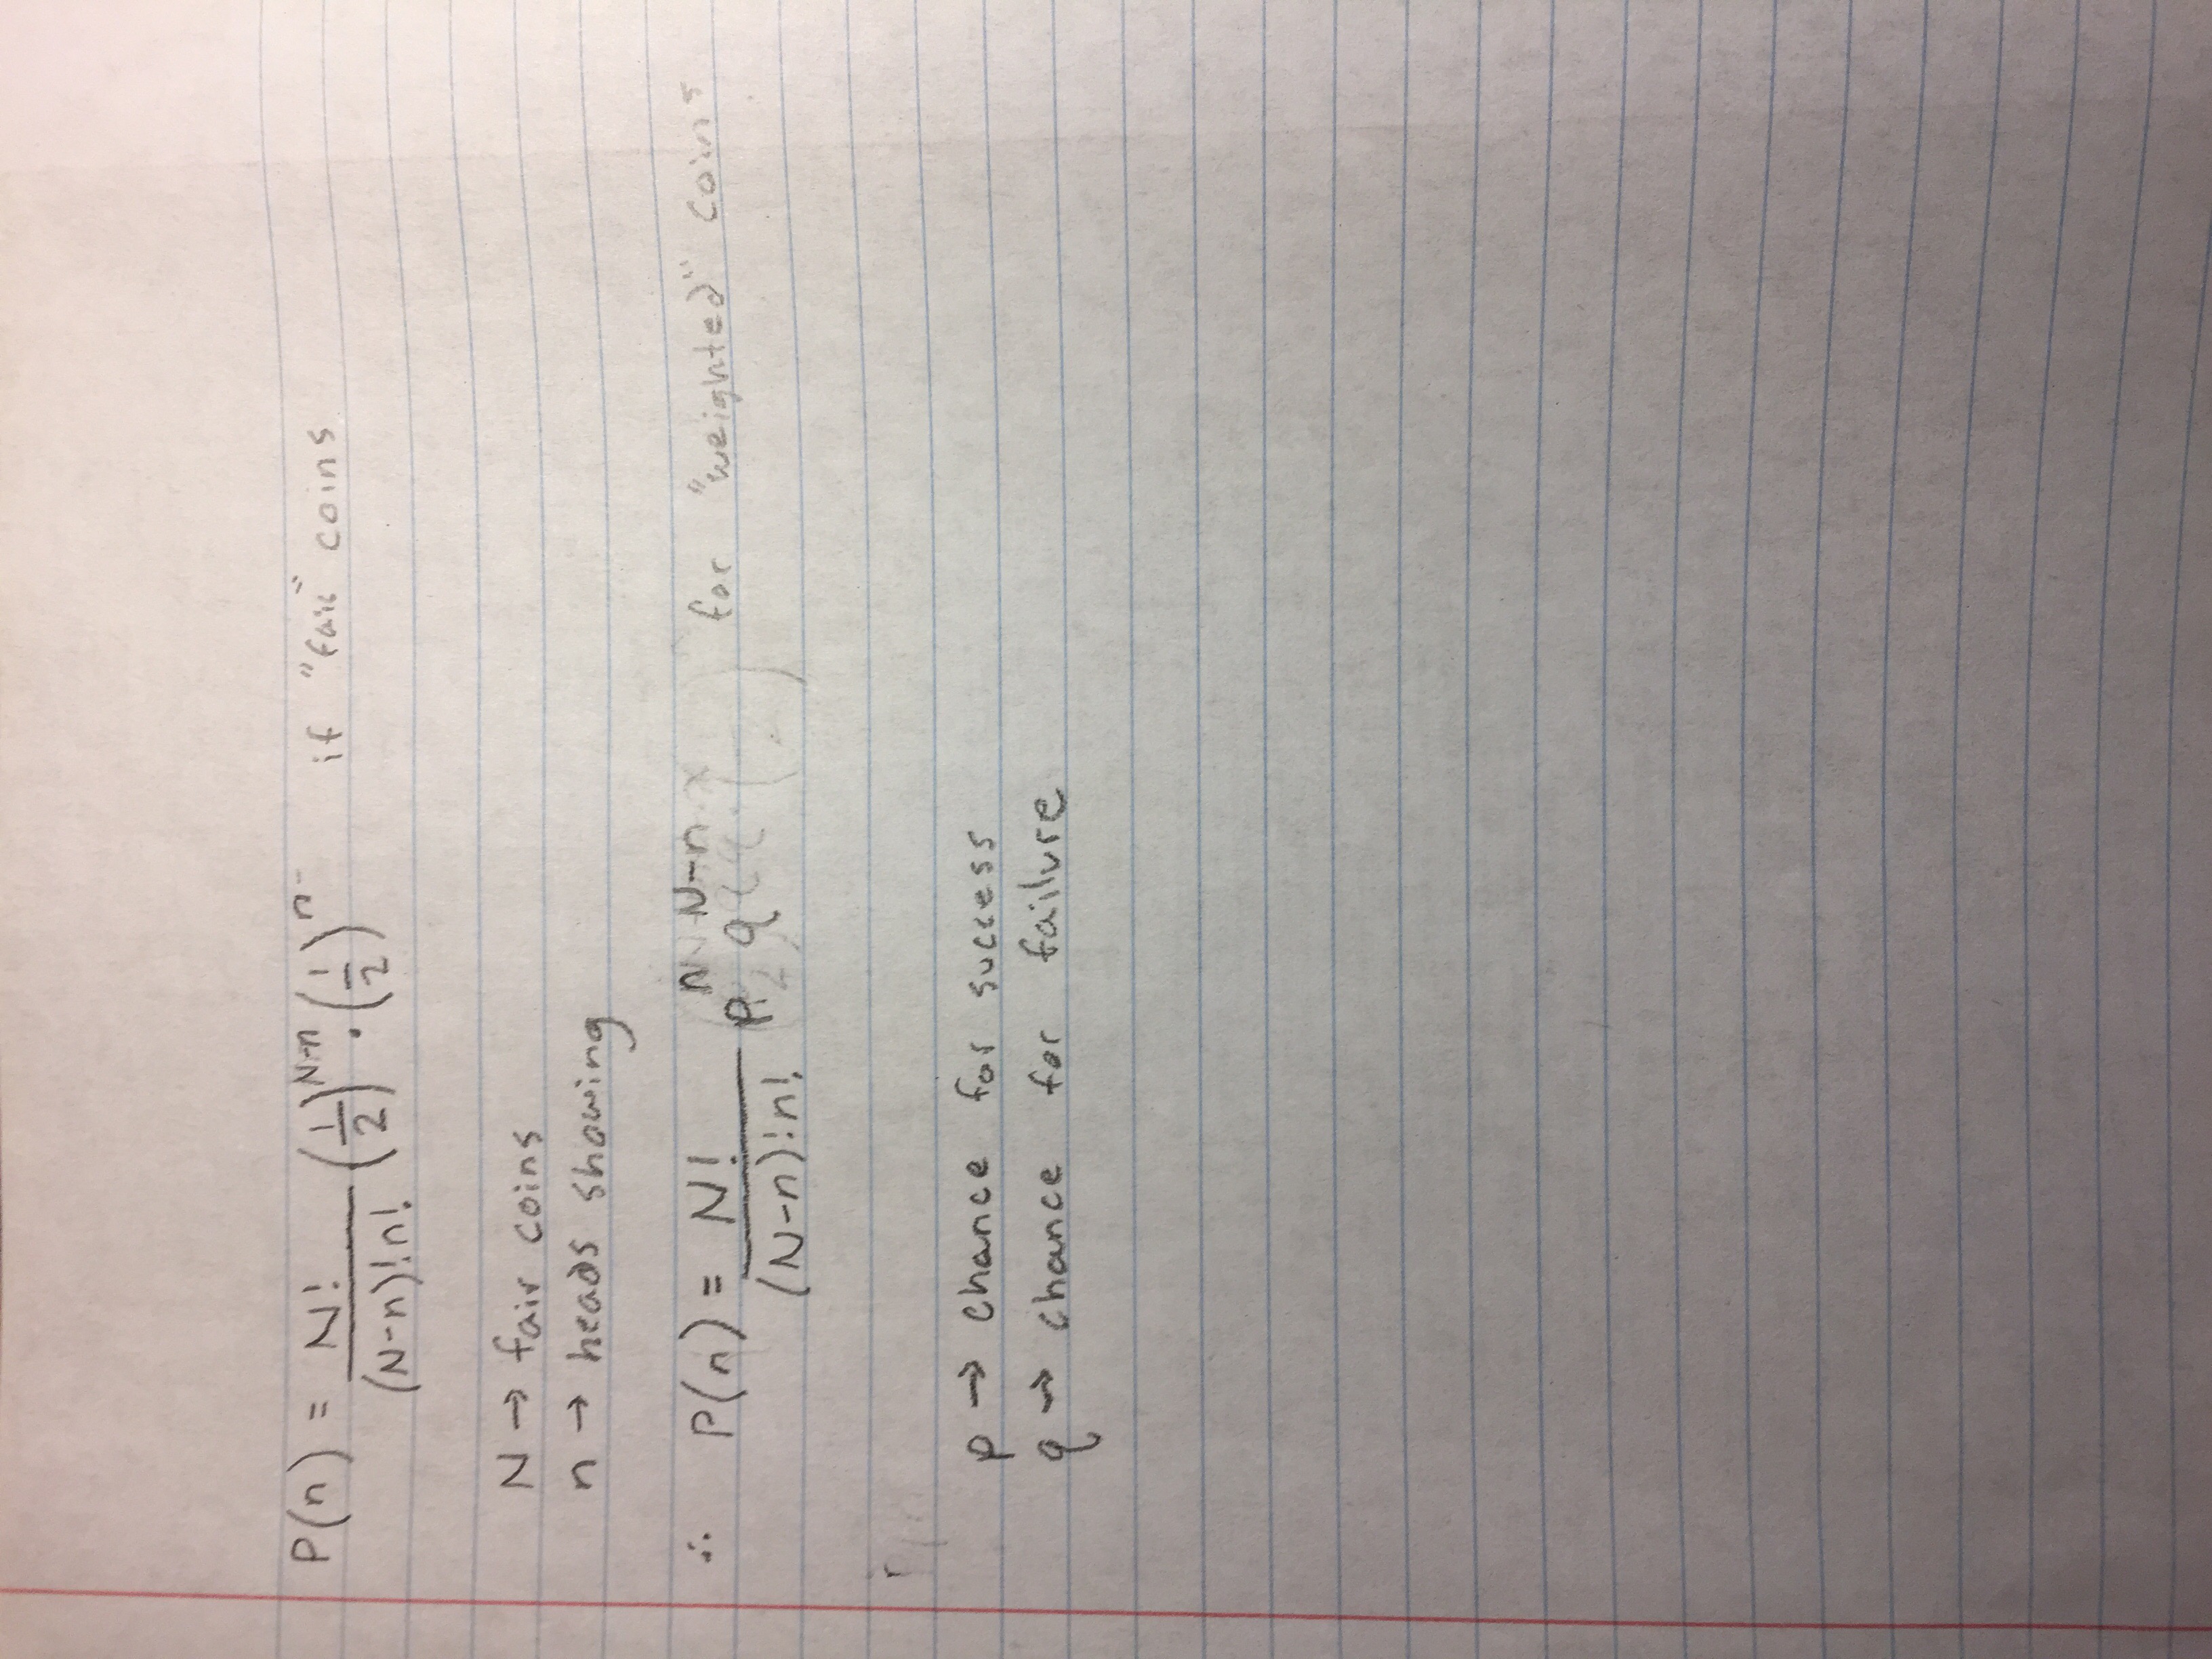 P(n) = N!/((N-n)!n!) (1/2)^(N-n) · (1/2)^n if "fair" coins
N → fair coins
n → heads showing
∴ P(n) = N!/((N-n)!n!) p^n q^(N-n) for "weighted" coins
p → chance for success
q → chance for failure